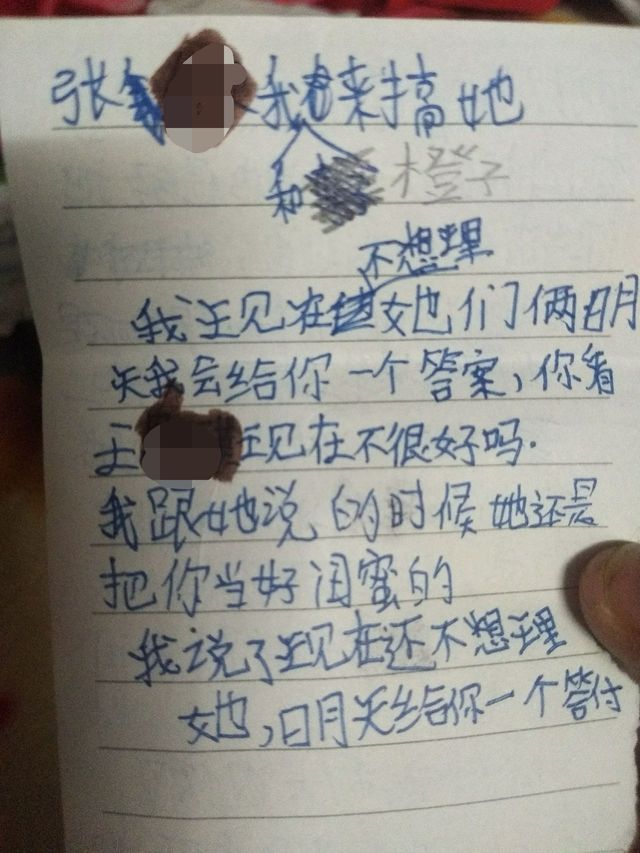 张 我来搞她
和 橙子
不想理
我现在她们俩明
天我会给你一个答案,你看
王 现在不很好吗.
我跟她说的时候她还是
把你当好闺蜜的
我说了现在还不想理
她,明天给你一个答付